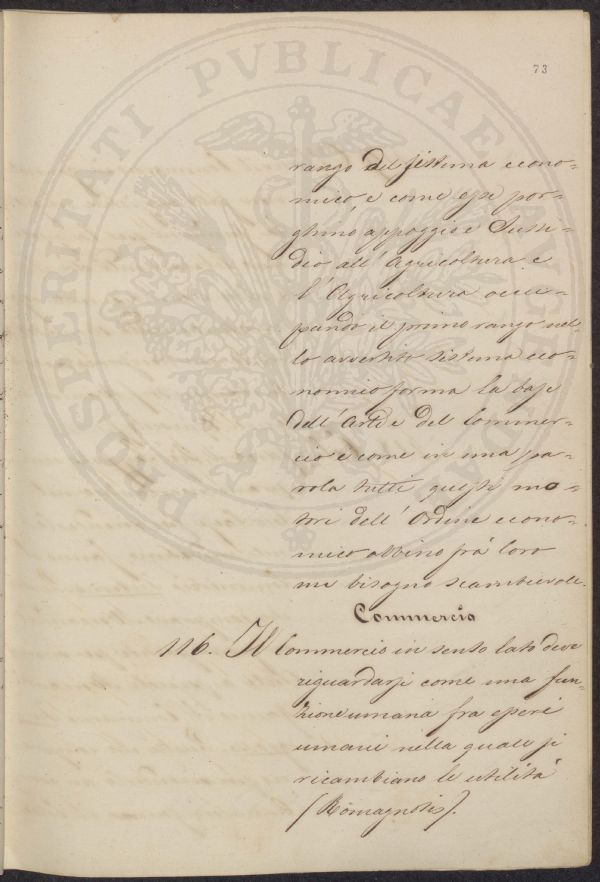 73
rango del sistema econo=
mico e come esse por=
ghino appoggio e Sussi=
dio all' Agricoltura e
l' Agricoltura occu=
pando il primo rango nel=
lo avvertito sistema eco=
nomico forma la base
dell' Arti e del Commer=
cio e come in una pa=
rola tutti questi mo=
tori dell' Ordine econo=
mico abbino frà loro
un bisogno scambievole.
Commercio
116. Il Commercio in senso lato deve
riguardarsi come una fun=
zione umana fra esseri
umani nella quale si
ricambiano le utilità
(Romagnosi).
PROSPERITATI PVBLICAE AVGENDAE